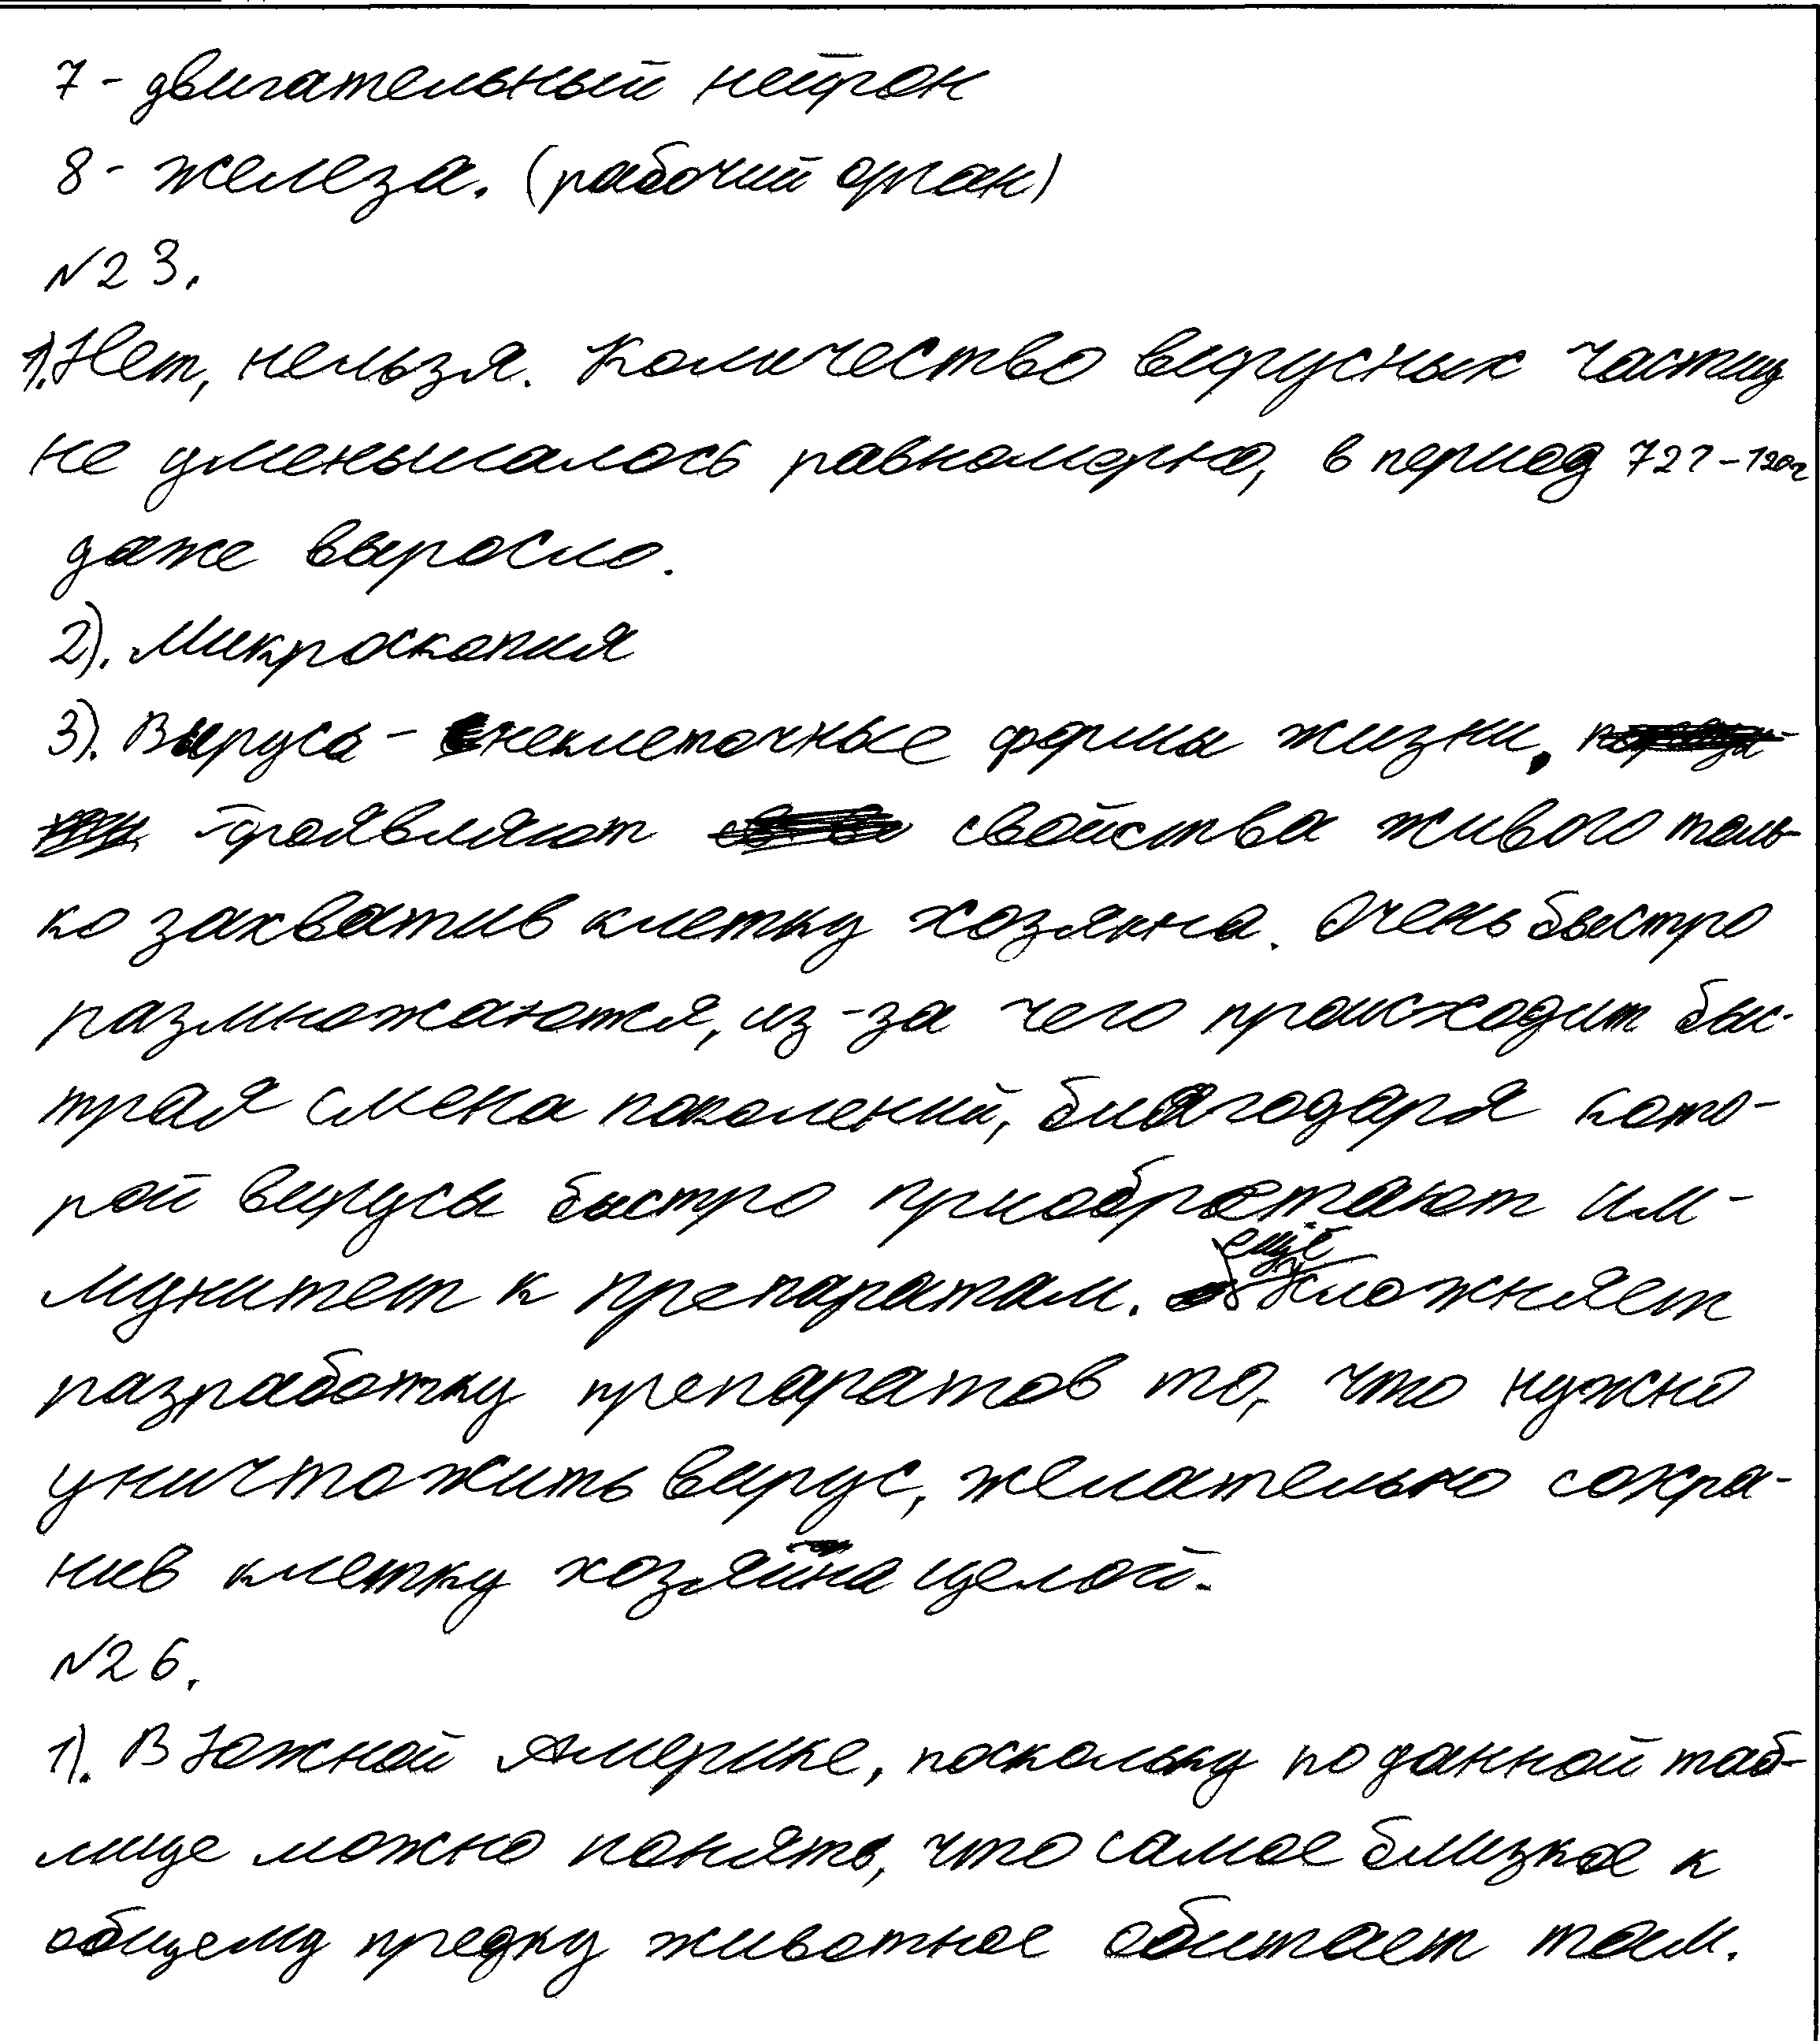 7 - двигательный нейрон
8 - железа. (рабочий орган)
№23.
1). Нет, нельзя. Количество вирусных частиц
не уменьшалось равномерно, в период 72г - 120г
даже выросло.
2). Микроскопия
3). Вирусы - неклеточные формы жизни,
проявляют свойства живого толь-
ко захватив клетку хозяина. Очень быстро
размножаются, из-за чего происходит быс-
трая смена поколений, благодаря кото-
рой вирусы быстро приобретают им-
мунитет к препаратам. ещё усложняет
разработку препаратов то, что нужно
уничтожить вирус, желательно сохра-
нив клетку хозяина целой.
№26.
1). В Южной Америке, поскольку по данной таб-
лице можно понять, что самое близкое к
общему предку животное обитает там.